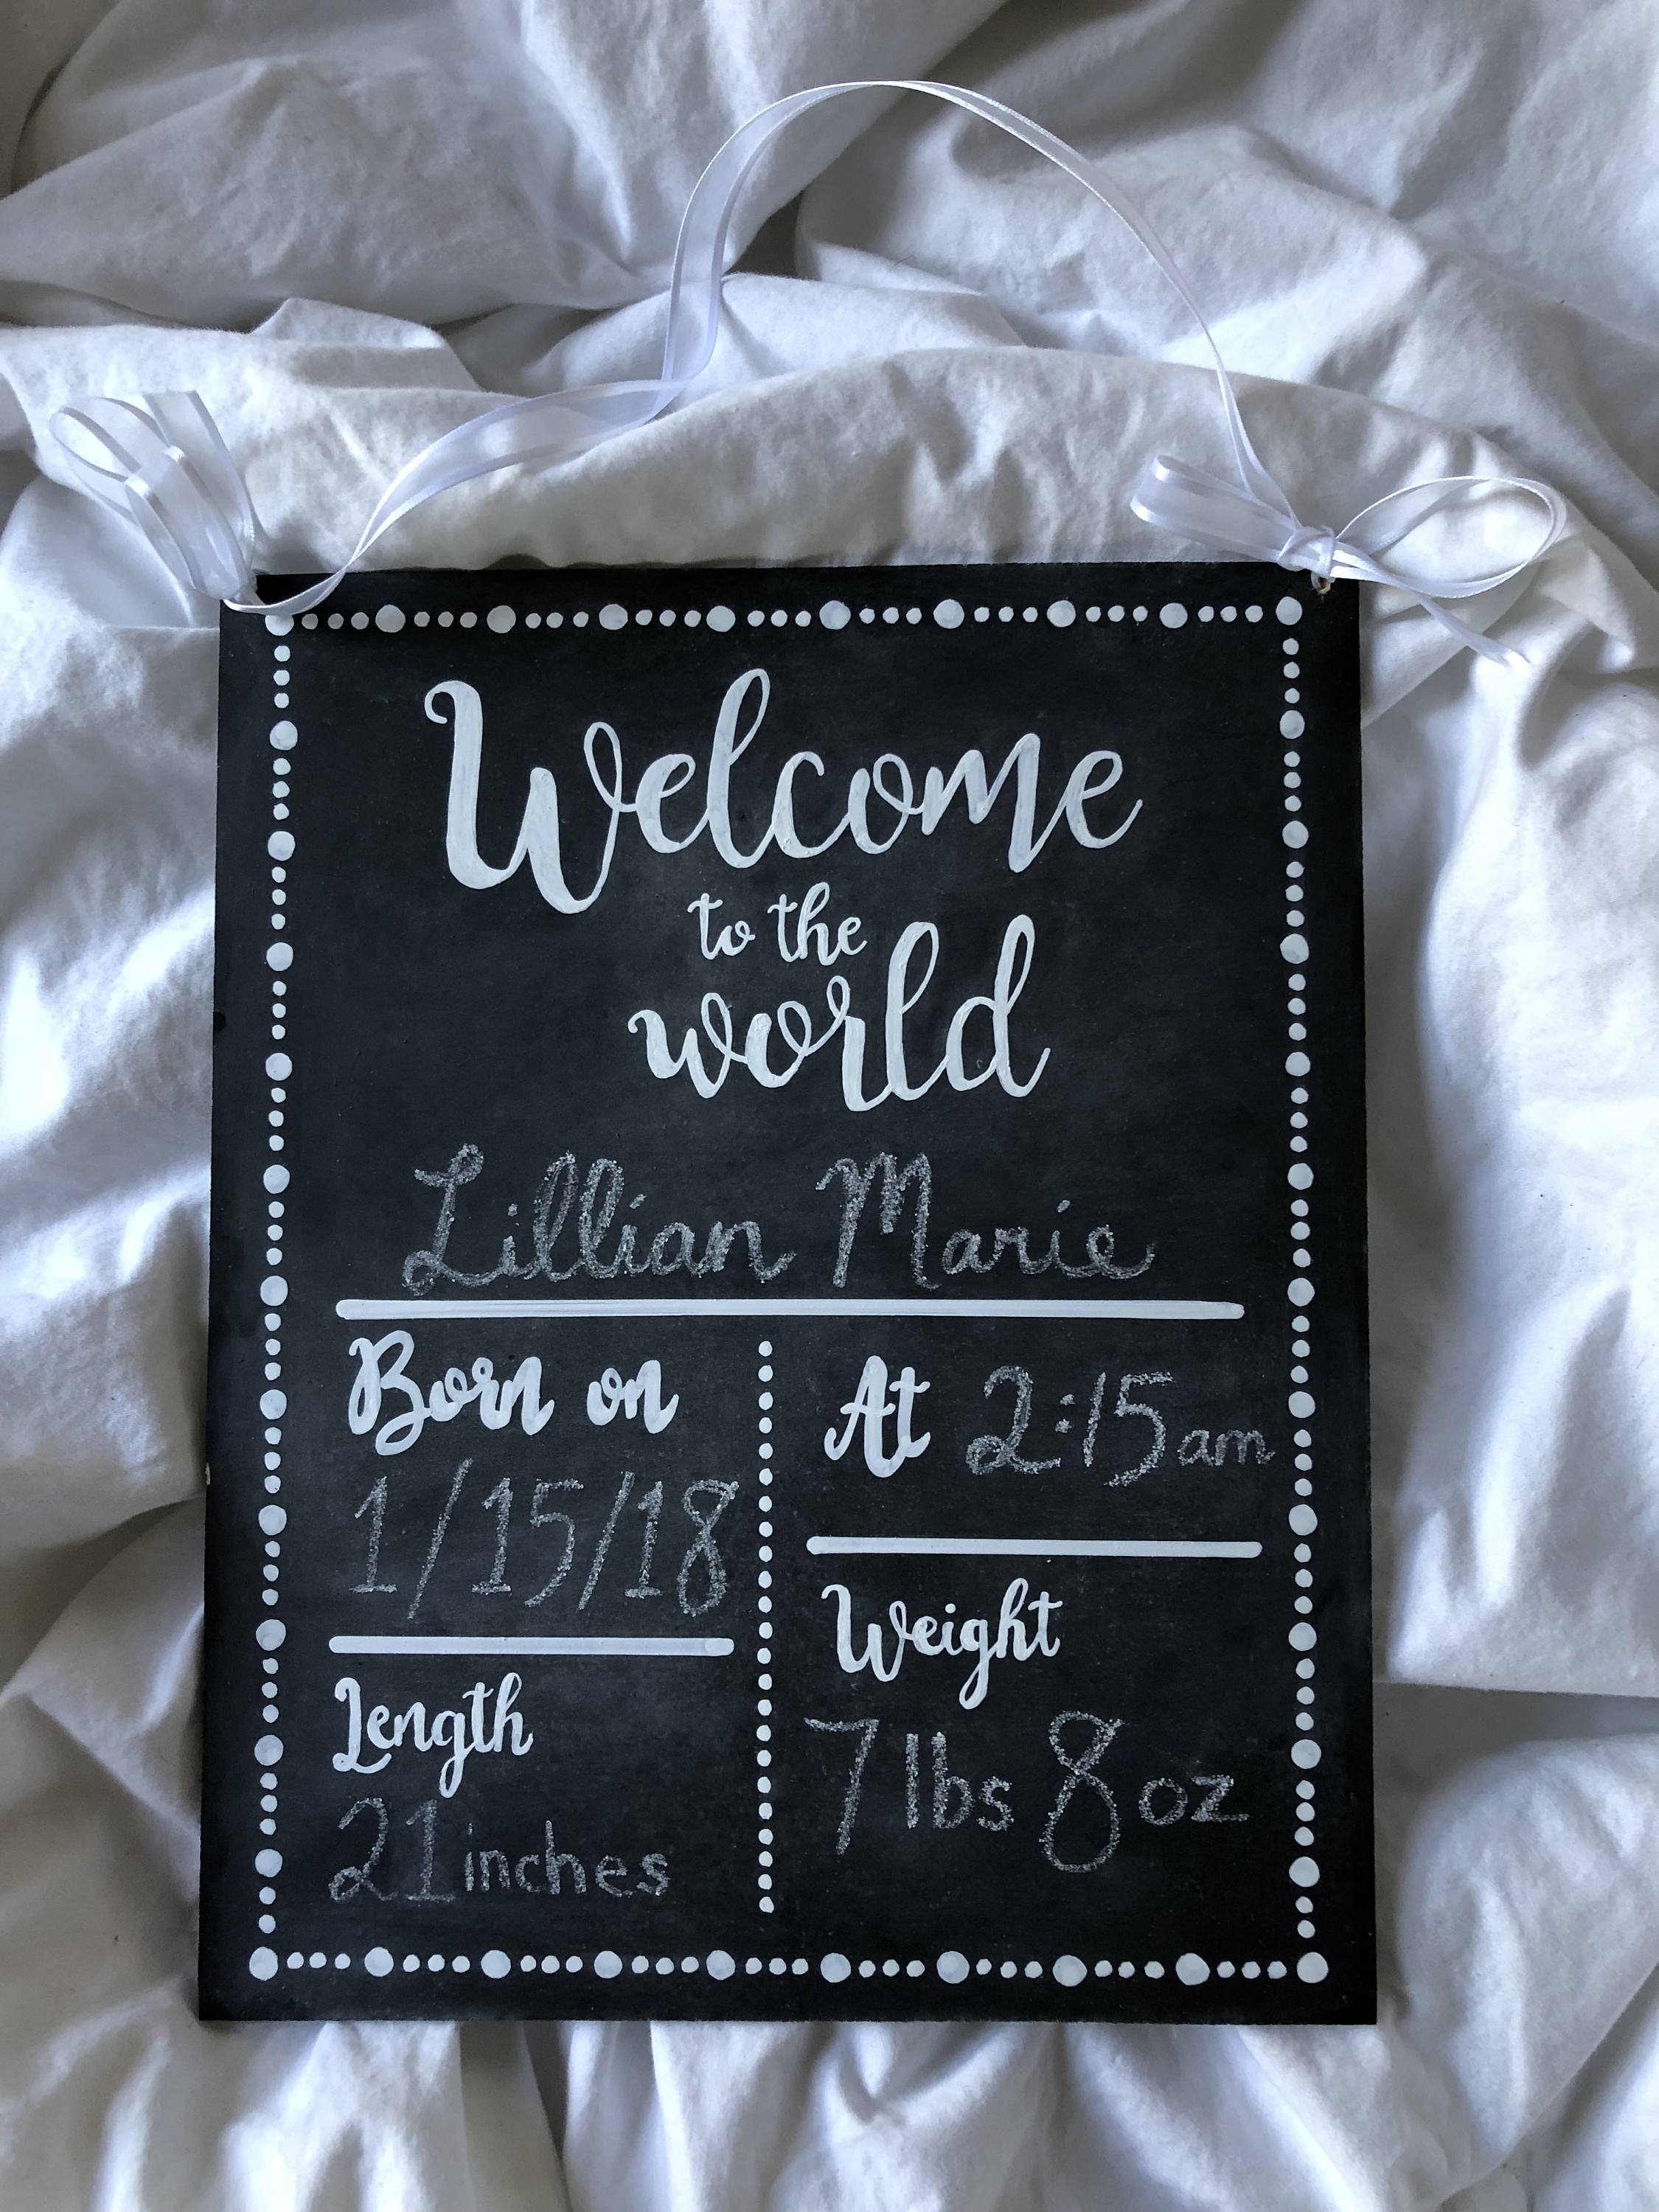 Welcome
to the
world
Lillian Marie
Born on
1/15/18
Length
21 inches
At 2:15 am
Weight
7 lbs 8 oz